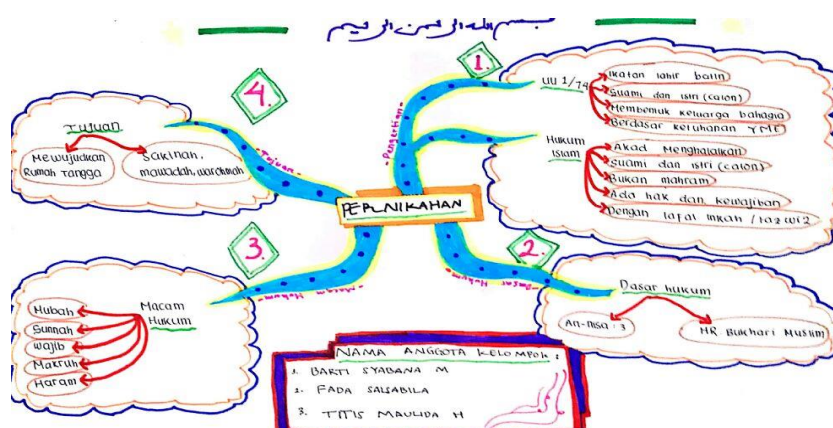 بسم الله الرحمن الرحيم
1.
Pengertian
UU 1/74
Ikatan lahir batin
Suami dan istri (calon)
Membentuk keluarga bahagia
Berdasar ketuhanan YME
Hukum
Islam
Akad Menghalalkan
Suami dan istri (calon)
Bukan mahram
Ada hak dan kewajiban
Dengan lafal inkah / tazwiz
PERNIKAHAN
2.
Dasar Hukum
Dasar hukum
An-nisa : 3
HR Bukhari Muslim
3.
Macam Hukum
Macam
Hukum
Mubah
Sunnah
Wajib
Makruh
Haram
4.
Tujuan
Tujuan
Mewujudkan
Rumah Tangga
Sakinah,
mawadah, warohmah
NAMA ANGGOTA KELOMPOK :
1. BARTI SYABANA M
2. FADA SALSABILA
3. TITIS MAULIDA H